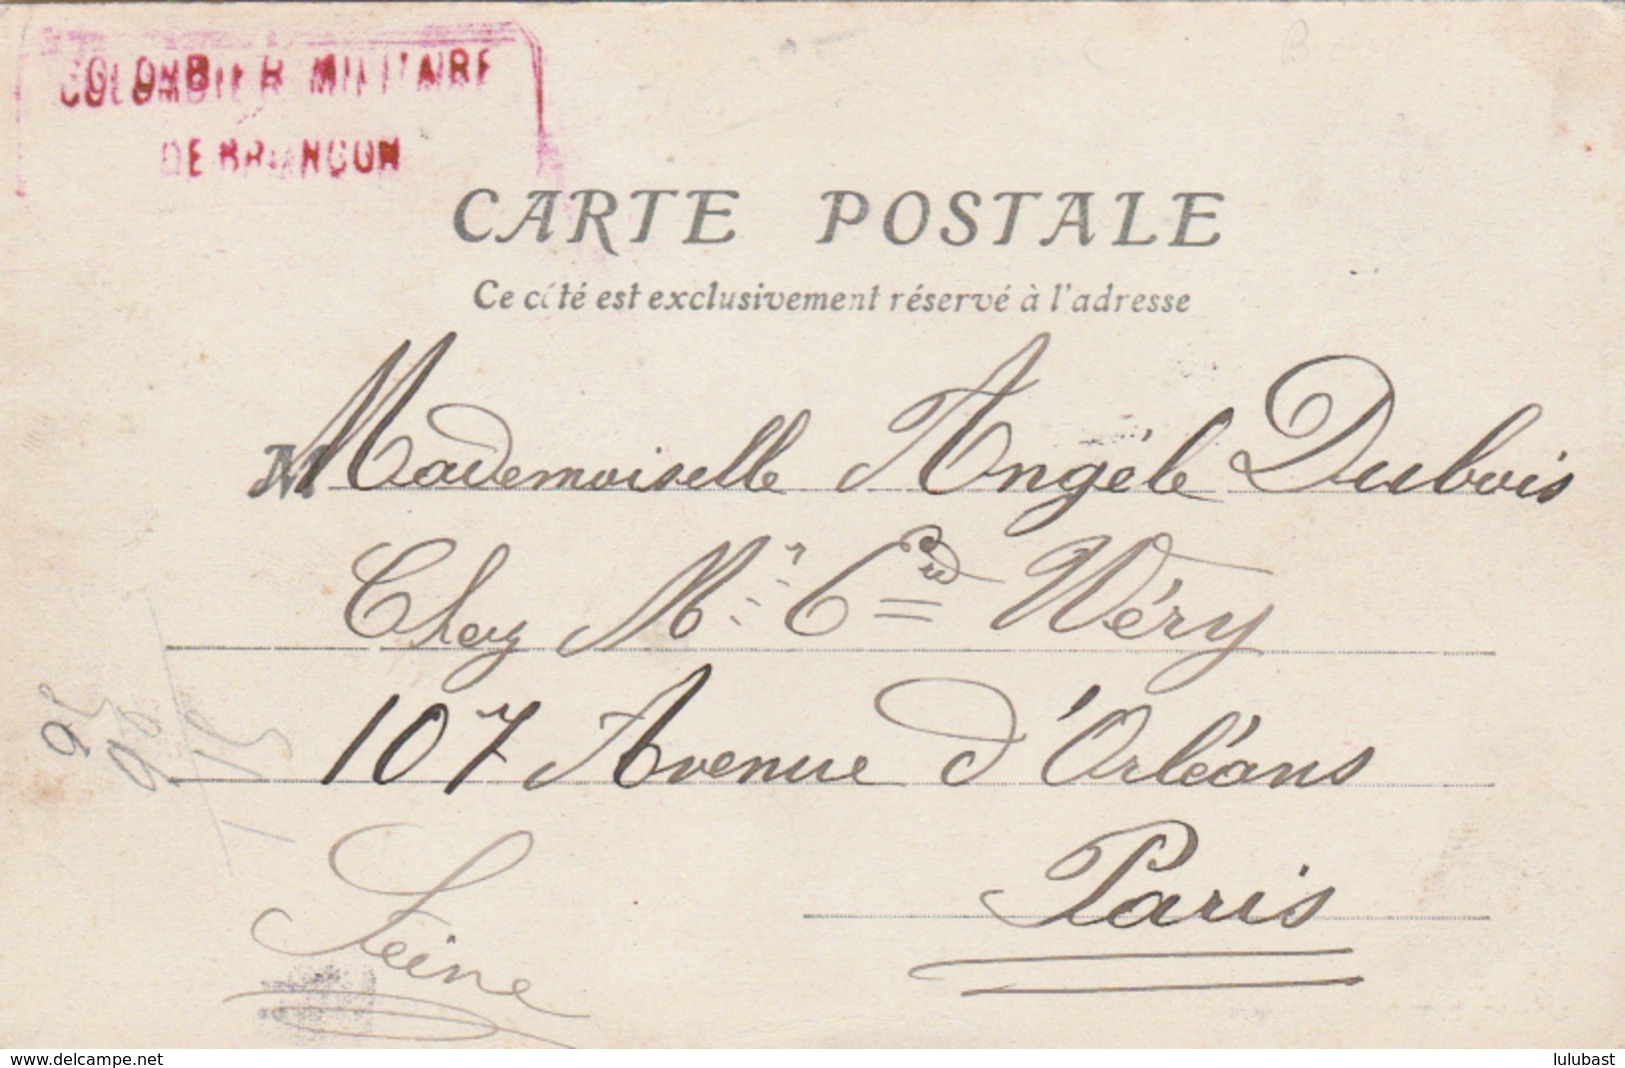 COLOMBIER MILITAIRE
DE BRIANCON
CARTE POSTALE
Ce côté est exclusivement réservé à l'adresse
M Mademoiselle Angèle Dubois
Chez Mr Wéry
107 Avenue d'Orléans
Paris
Seine
www.delcampe.net
lulubast